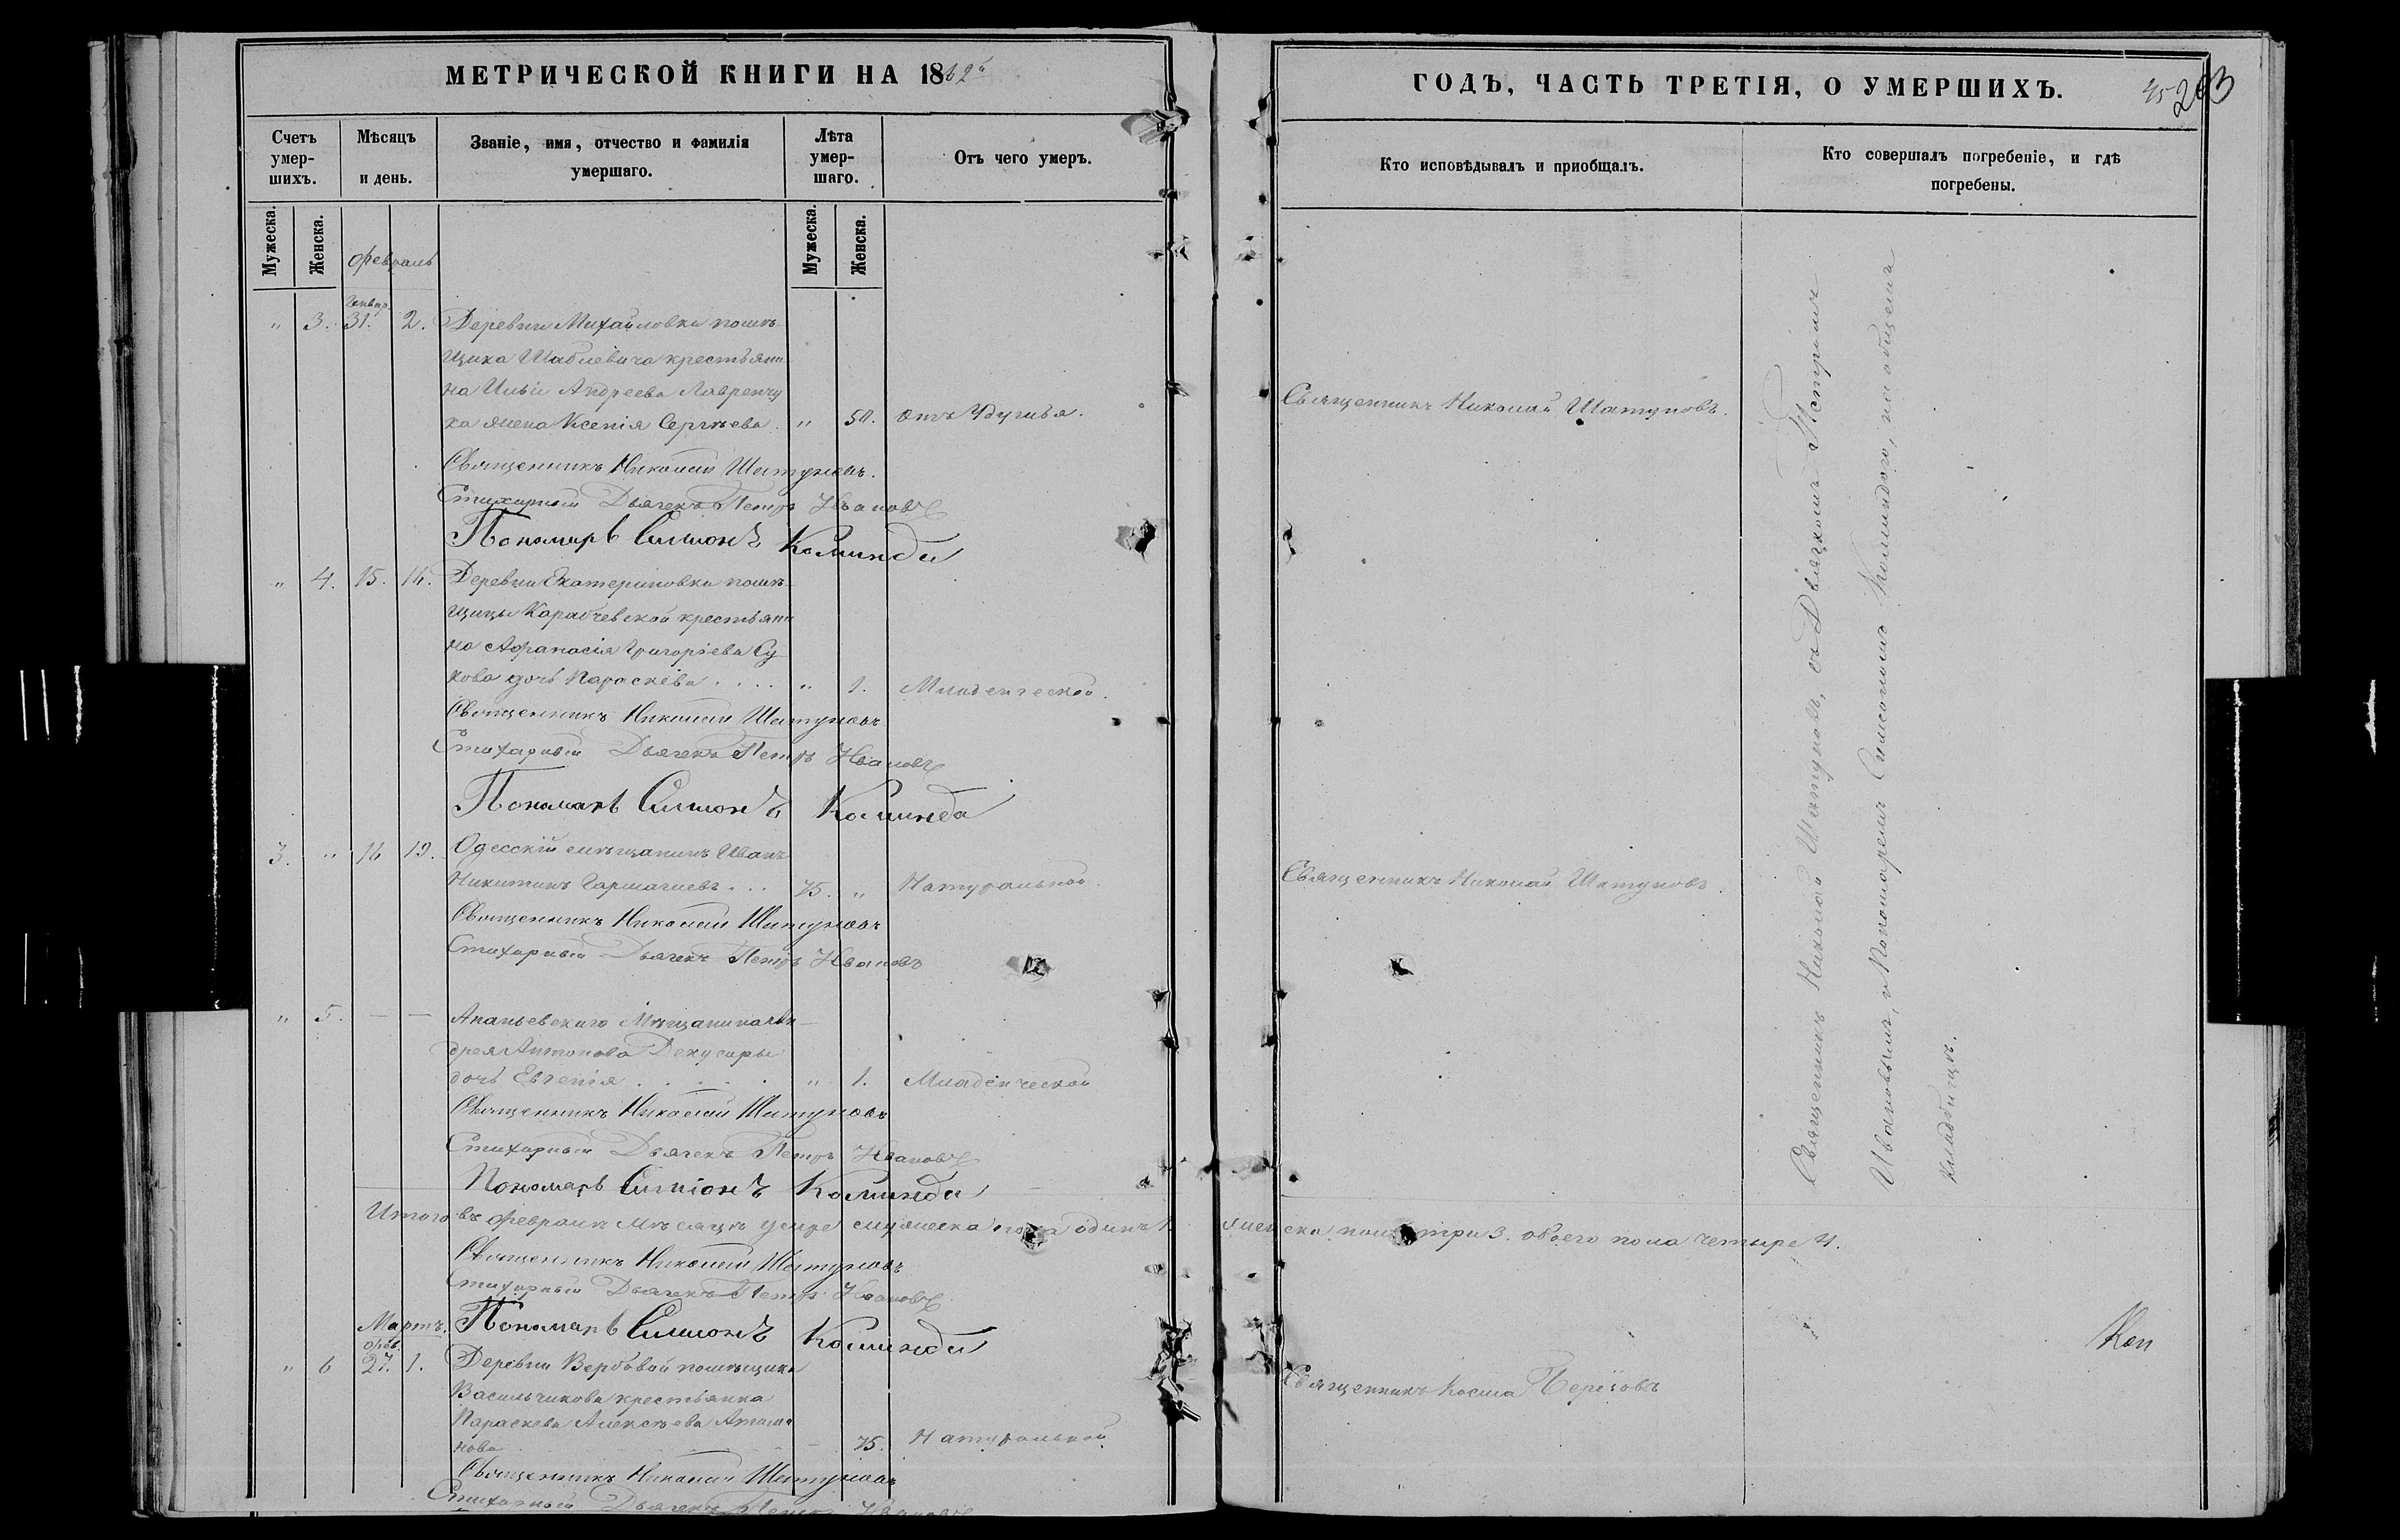 МЕТРИЧЕСКОЙ КНИГИ НА 1862й
ГОДЪ, ЧАСТЬ ТРЕТІЯ, О УМЕРШИХЪ.
45
203
Счетъ умер- шихъ.
Мѣсяцъ и день.
Званіе, имя, отчество и фамилія умершаго.
Лѣта умер- шаго.
Отъ чего умеръ.
Кто исповѣдывалъ и пріобщалъ.
Кто совершалъ погребеніе, и гдѣ погребены.
Мужеска. Женска. Мужеска. Женска.
Февраль
Генвар.
" 3. 31. 2. Деревни Михайловки помѣ-
щика Шаблевича крестьяни-
на Ильи Андреева Лавренчу
ка жена Ксенія Сергѣева. " 50. отъ Удушья. Священникъ Николай Шатуновъ.
Священникъ Николай Шатуновъ.
Стихарный Дьячекъ Петръ Ивановъ
Пономарь Симіонъ Коминда
" 4. 15. 16. Деревни Екатериновки помѣ-
щицы Карабчевской крестьяни
на Афанасія Григоріева Су
кова дочь Параскева . . . . " 1. Младенческой.
Священникъ Николай Шатуновъ
Стихарный Дьячекъ Петръ Ивановъ
Пономарь Симіонъ Коминда
3. " 16 19. Одесскій мѣщанинъ Иванъ
Никитинъ . . . 75. " Натуральной. Священникъ Николай Шатуновъ.
Священникъ Николай Шатуновъ
Стихарный Дьячекъ Петръ Ивановъ
" 5. — — Ананьевскаго Мѣщанина Ан-
дрея Антонова
дочь Евгенія . . . . . " 1. Младенческой
Священникъ Николай Шатуновъ
Стихарный Дьячекъ Петръ Ивановъ
Пономарь Симіонъ Коминда
Итого въ Февралѣ Мѣсяцѣ умре мужеска пола одинъ 1. женска пола три 3. обоего пола четыре 4.
Священникъ Николай Шатуновъ
Стихарный Дьячекъ Петръ Ивановъ
Мартъ. Пономарь Симіонъ Коминда
Фев.
" 6 27. 1. Деревни Вербовой помѣщика
Васильчикова крестьянка
Параскева Алексѣева Атама
нова 75. Натуральной Священникъ Косма
Священникъ Николай Шатуновъ
Стихарный Дьячекъ Петръ Ивановъ
Священникъ Николай Шатуновъ, съ Дьячкомъ Петромъ
Ивановымъ, и Пономаремъ Симеономъ Коминдою, на общемъ
кладбищѣ.
Коп